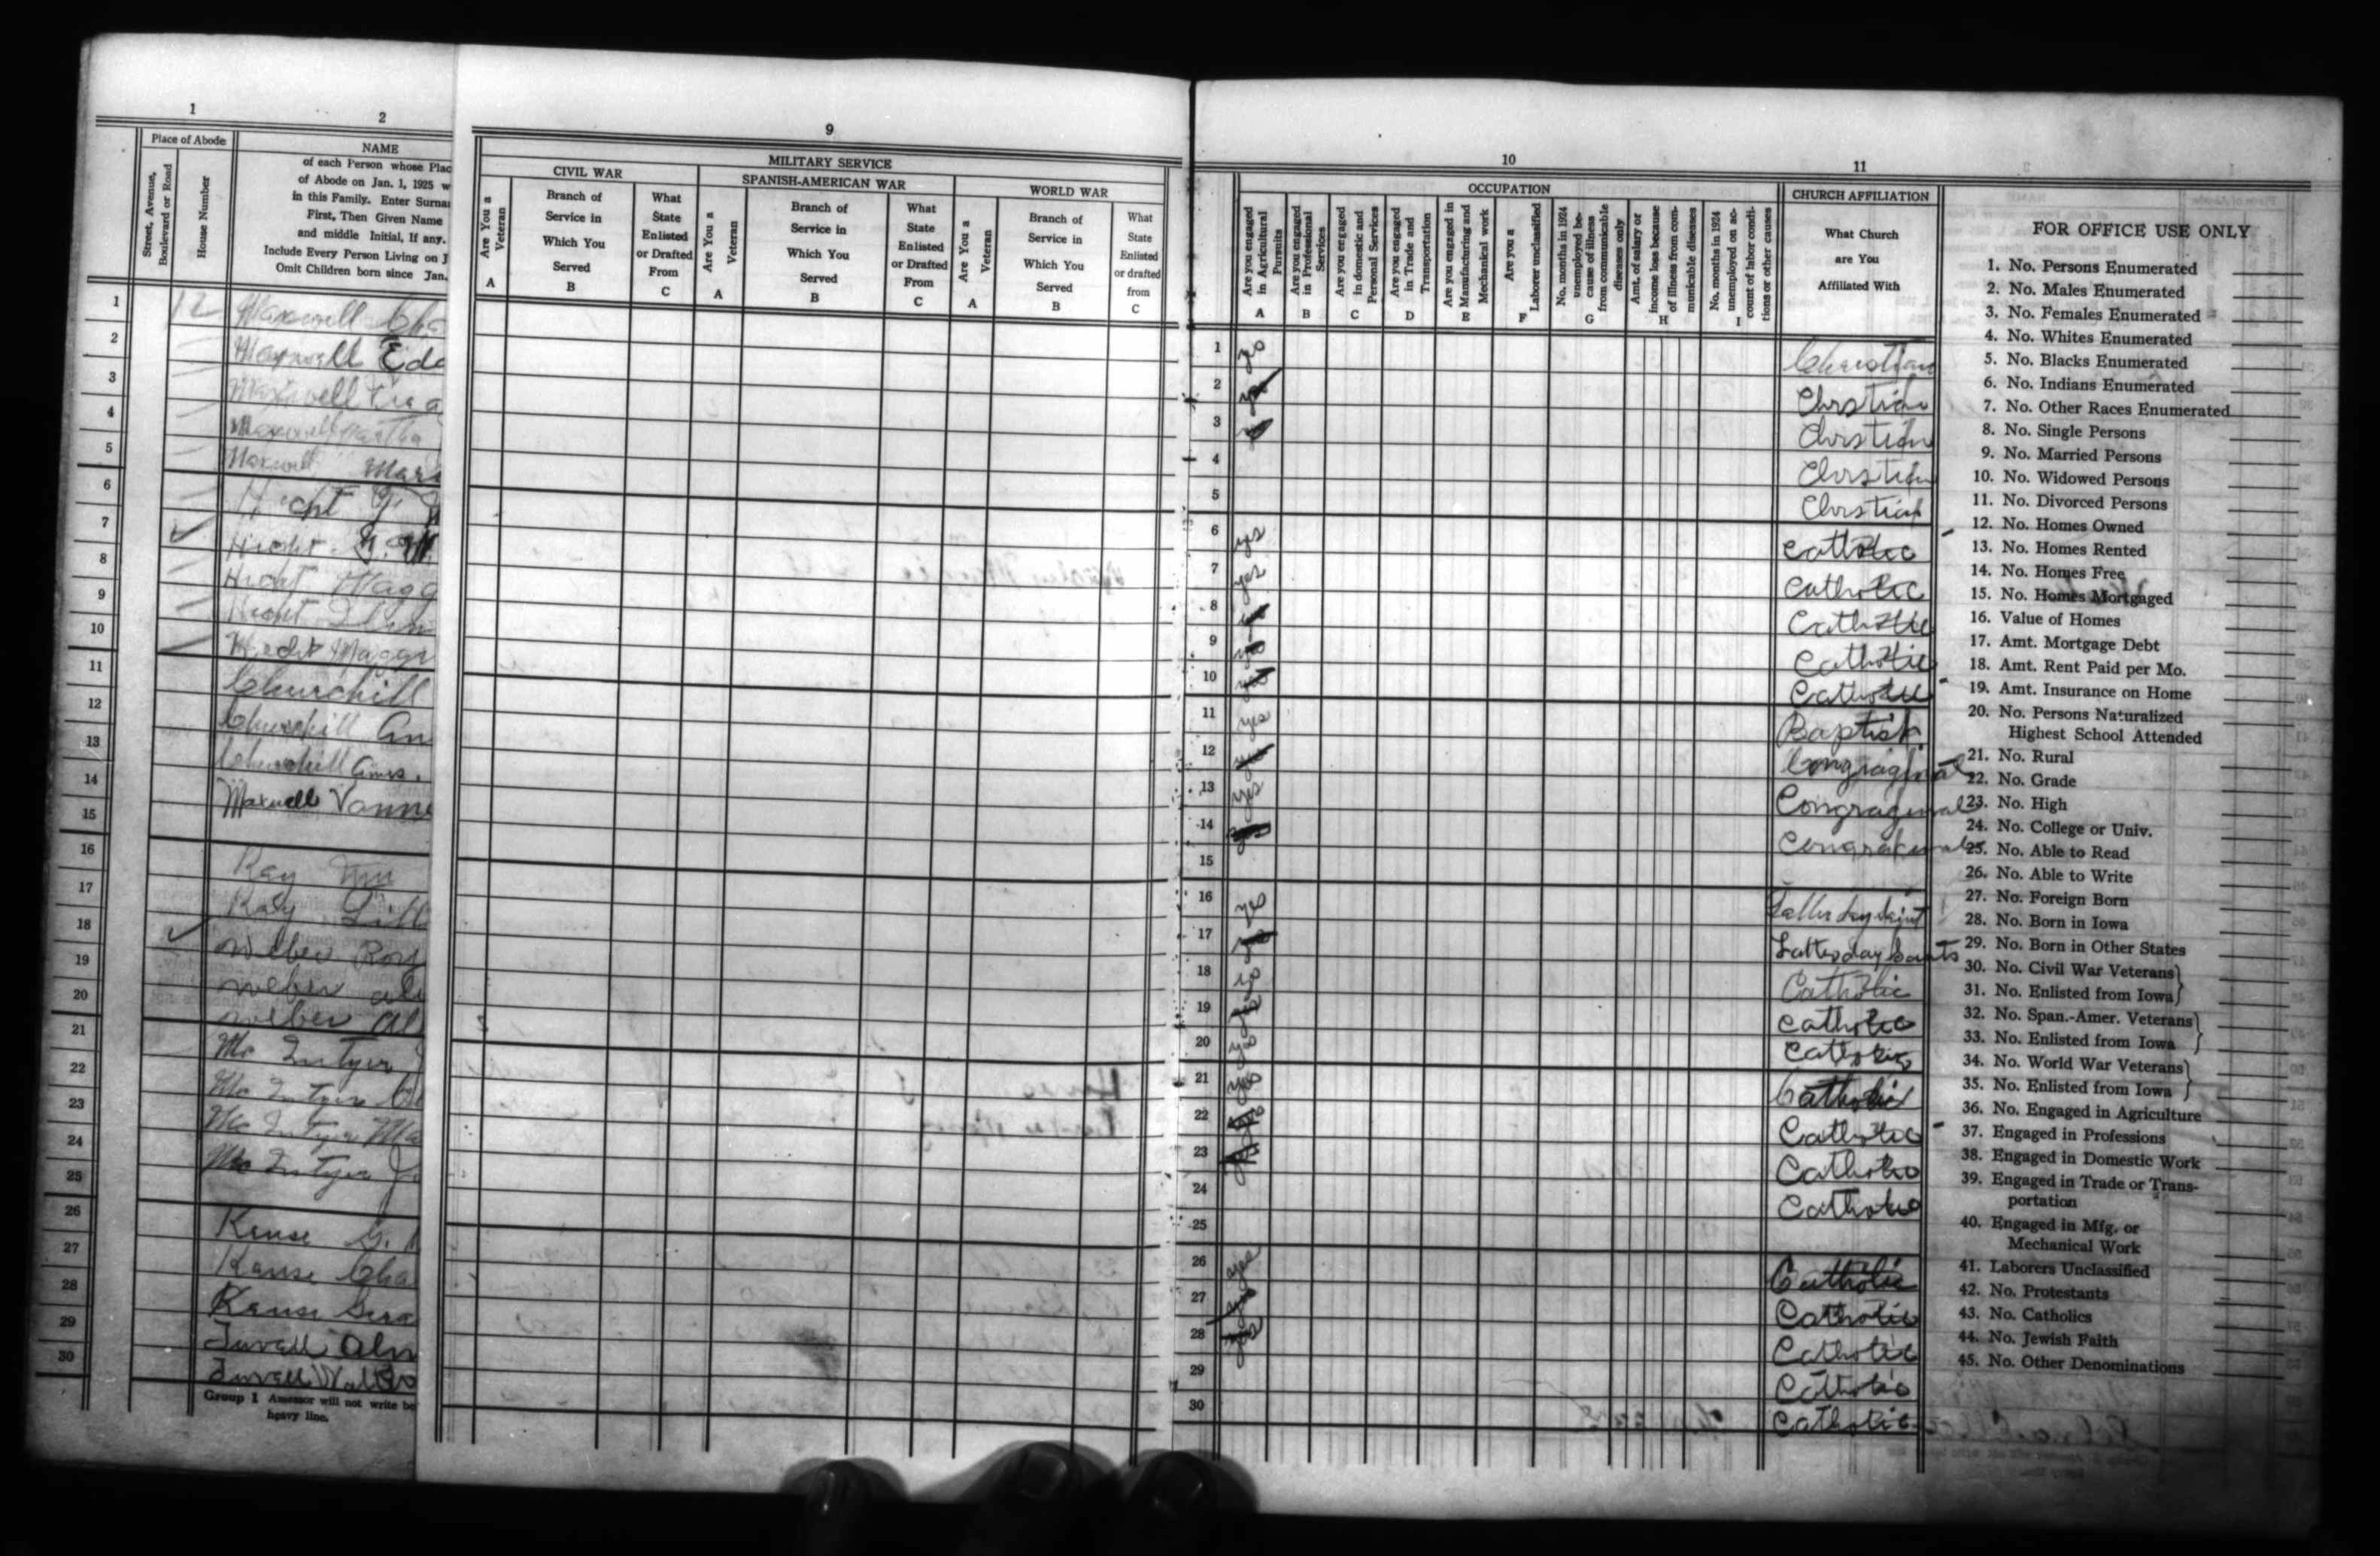 1
2
Place of Abode
Street, Avenue, Boulevard or Road
House Number
NAME
of each Person whose Plac
of Abode on Jan. 1, 1925 w
in this Family. Enter Surna
First, Then Given Name
and middle Initial, If any.
Include Every Person Living on J
Omit Children born since Jan.
1 12 Maxwell Cha
2 Maxwell Eda
3 Maxwell
4 Maxwell Martha
5 Maxwell Mari
6 Hecht G.
7 Hecht
8 Hecht Magg
9 Hecht
10 Hecht Maggi
11 Churchill
12 Churchill An
13 Churchill Amos.
14 Maxwell Vanne
15
16 Ray
17 Ray Lill
18 Weber Rory
19 Weber
20 Weber Al
21 Mc Intyer
22 Mc Intyer
23 Mc Intyer Ma
24 Mc Intyer
25
26 Kruse G.
27 Kruse Cha
28 Kruse Gera
29 Juvell Alm
30 Juvell Walter
Group 1 Assessor will not write be
heavy line.
9
MILITARY SERVICE
CIVIL WAR
Are You a Veteran
A
Branch of Service in Which You Served
B
What State Enlisted or Drafted From
C
SPANISH-AMERICAN WAR
Are You a Veteran
A
Branch of Service in Which You Served
B
What State Enlisted or Drafted From
C
WORLD WAR
Are You a Veteran
A
Branch of Service in Which You Served
B
What State Enlisted or drafted from
C
10
OCCUPATION
Are you engaged in Agricultural Pursuits
A
Are you engaged in Professional Services
B
Are you engaged in domestic and Personal Services
C
Are you engaged in Trade and Transportation
D
Are you engaged in Manufacturing and Mechanical work
E
Are you a Laborer unclassified
F
No. months in 1924 unemployed because of illness from communicable diseases only
G
Amt. of salary or income loss because of illness from communicable diseases
H
No. months in 1924 unemployed on account of labor conditions or other causes
I
11
CHURCH AFFILIATION
What Church
are You
Affiliated With
1 yes Christian
2 Chrstian
3 Chrstian
4 Chrstian
5 Chrstian
6 yes Catholic
7 yes Catholic
8 Catholic
9 yes Catholic
10 yes Catholic
11 yes Baptist
12 yes Congraginal
13 yes Congraginal
14 Congraginal
15
16 yes Latter day Saint
17 yes Latter day Saints
18 yes Catholic
19 yes Catholic
20 yes Catholic
21 yes Catholic
22 Catholic
23 Catholic
24 Catholic
25
26 yes Catholic
27 yes Catholic
28 yes Catholic
29 Catholic
30 Catholic
FOR OFFICE USE ONLY
1. No. Persons Enumerated
2. No. Males Enumerated
3. No. Females Enumerated
4. No. Whites Enumerated
5. No. Blacks Enumerated
6. No. Indians Enumerated
7. No. Other Races Enumerated
8. No. Single Persons
9. No. Married Persons
10. No. Widowed Persons
11. No. Divorced Persons
12. No. Homes Owned
13. No. Homes Rented
14. No. Homes Free
15. No. Homes Mortgaged
16. Value of Homes
17. Amt. Mortgage Debt
18. Amt. Rent Paid per Mo.
19. Amt. Insurance on Home
20. No. Persons Naturalized
Highest School Attended
21. No. Rural
22. No. Grade
23. No. High
24. No. College or Univ.
25. No. Able to Read
26. No. Able to Write
27. No. Foreign Born
28. No. Born in Iowa
29. No. Born in Other States
30. No. Civil War Veterans
31. No. Enlisted from Iowa
32. No. Span.-Amer. Veterans
33. No. Enlisted from Iowa
34. No. World War Veterans
35. No. Enlisted from Iowa
36. No. Engaged in Agriculture
37. Engaged in Professions
38. Engaged in Domestic Work
39. Engaged in Trade or Trans-
portation
40. Engaged in Mfg. or
Mechanical Work
41. Laborers Unclassified
42. No. Protestants
43. No. Catholics
44. No. Jewish Faith
45. No. Other Denominations